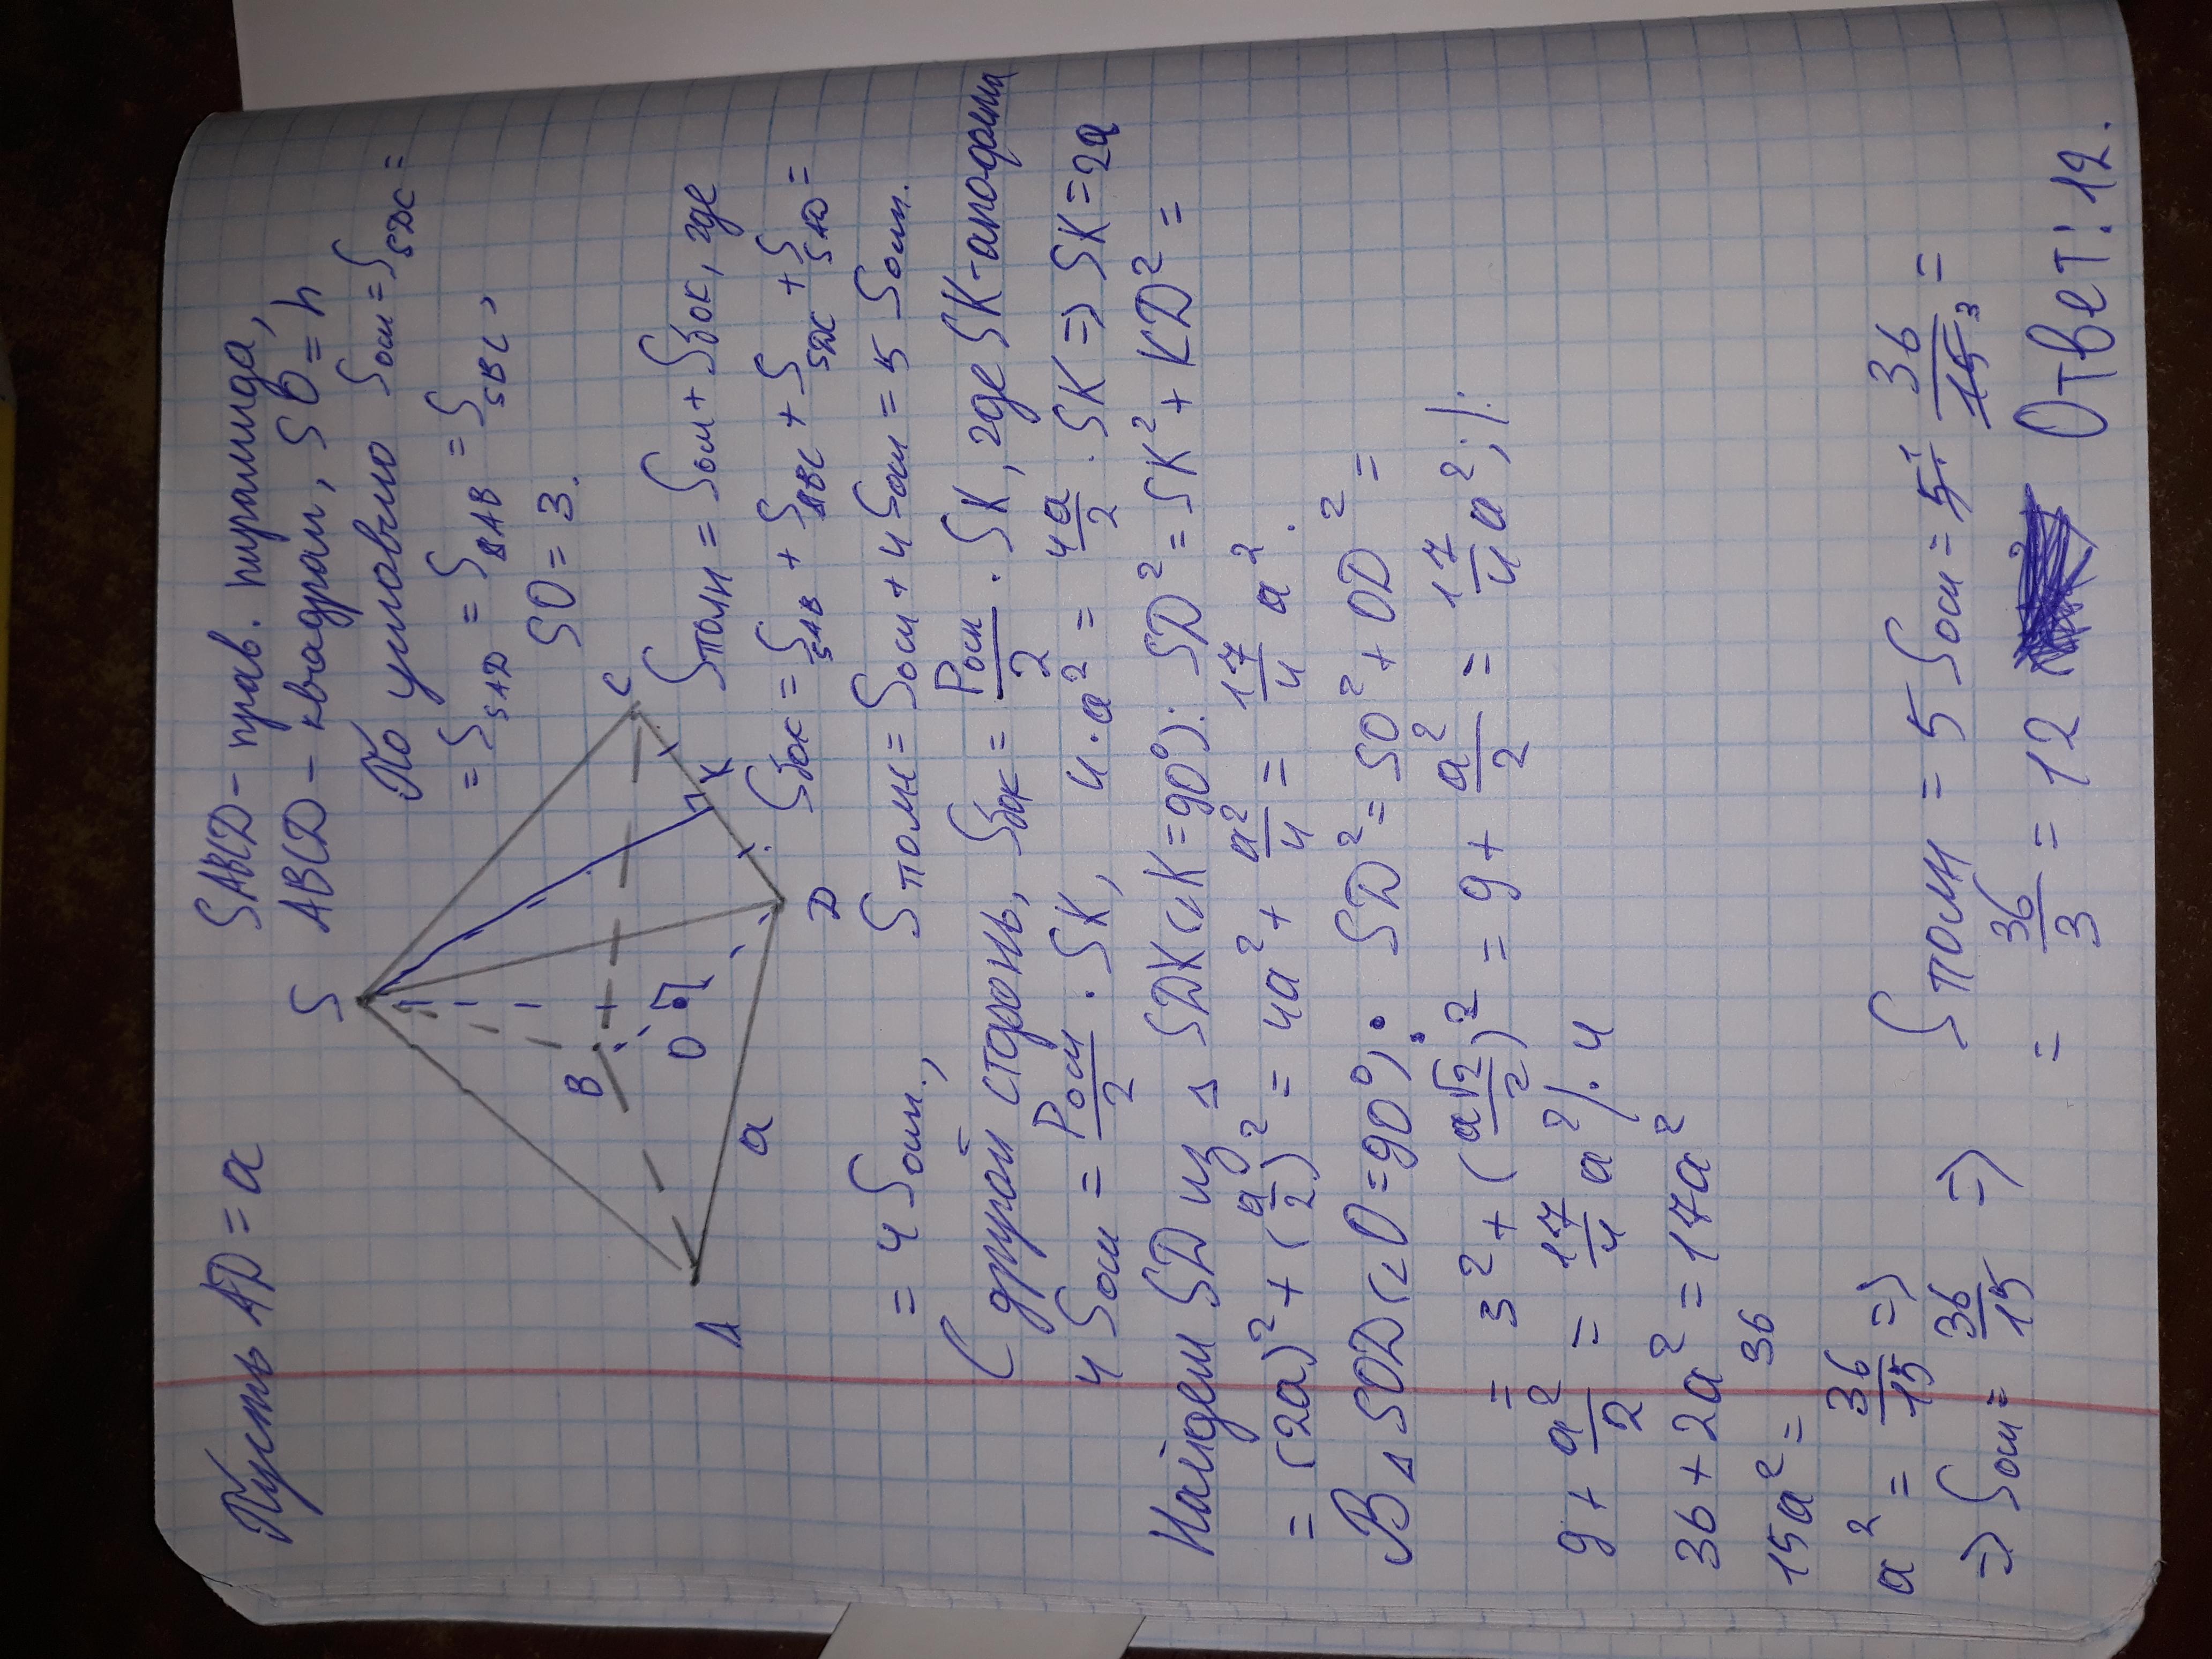 Пусть AD = a
SABCD - прав. пирамида,
ABCD - квадрат, SO = h
По условию Sосн = S_SDC =
= S_SAD = S_SAB = S_SBC,
SO = 3.
S
B
O
A
a
D
K
C
Sполн = Sосн + Sбок, где
Sбок = S_SAB + S_ABC + S_SDC + S_SAD =
= 4 Sосн.,
Sполн = Sосн + 4 Sосн = 5 Sосн.
С другой стороны, Sбок = Pосн/2 · SK, где SK - апофема
4 Sосн = Pосн/2 · SK, 4 · a² = 4a/2 · SK => SK = 2a
Найдем SD из Δ SDK (∠K = 90°): SD² = SK² + KD² =
= (2a)² + (a/2)² = 4a² + a²/4 = 17/4 a².
В Δ SOD (∠O = 90°): SD² = SO² + OD² =
= 3² + (a√2/2)² = 9 + a²/2 = 17/4 a²; /.
9 + a²/2 = 17/4 a² /·4
36 + 2a² = 17a²
15a² = 36
a² = 36/15 =>
=> Sосн = 36/15 =>
Sполн = 5 Sосн = 5 · 36/15 3 =
= 36/3 = 12
Ответ: 12.